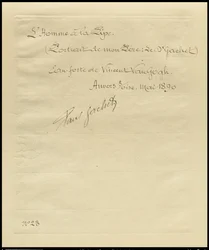 L'Homme à la Pipe.
(Portrait de mon Père: Dr Gachet)
Eau forte de Vincent Van Gogh.
Auvers s/Oise, Mai 1890
Paul Gachet
N° 23